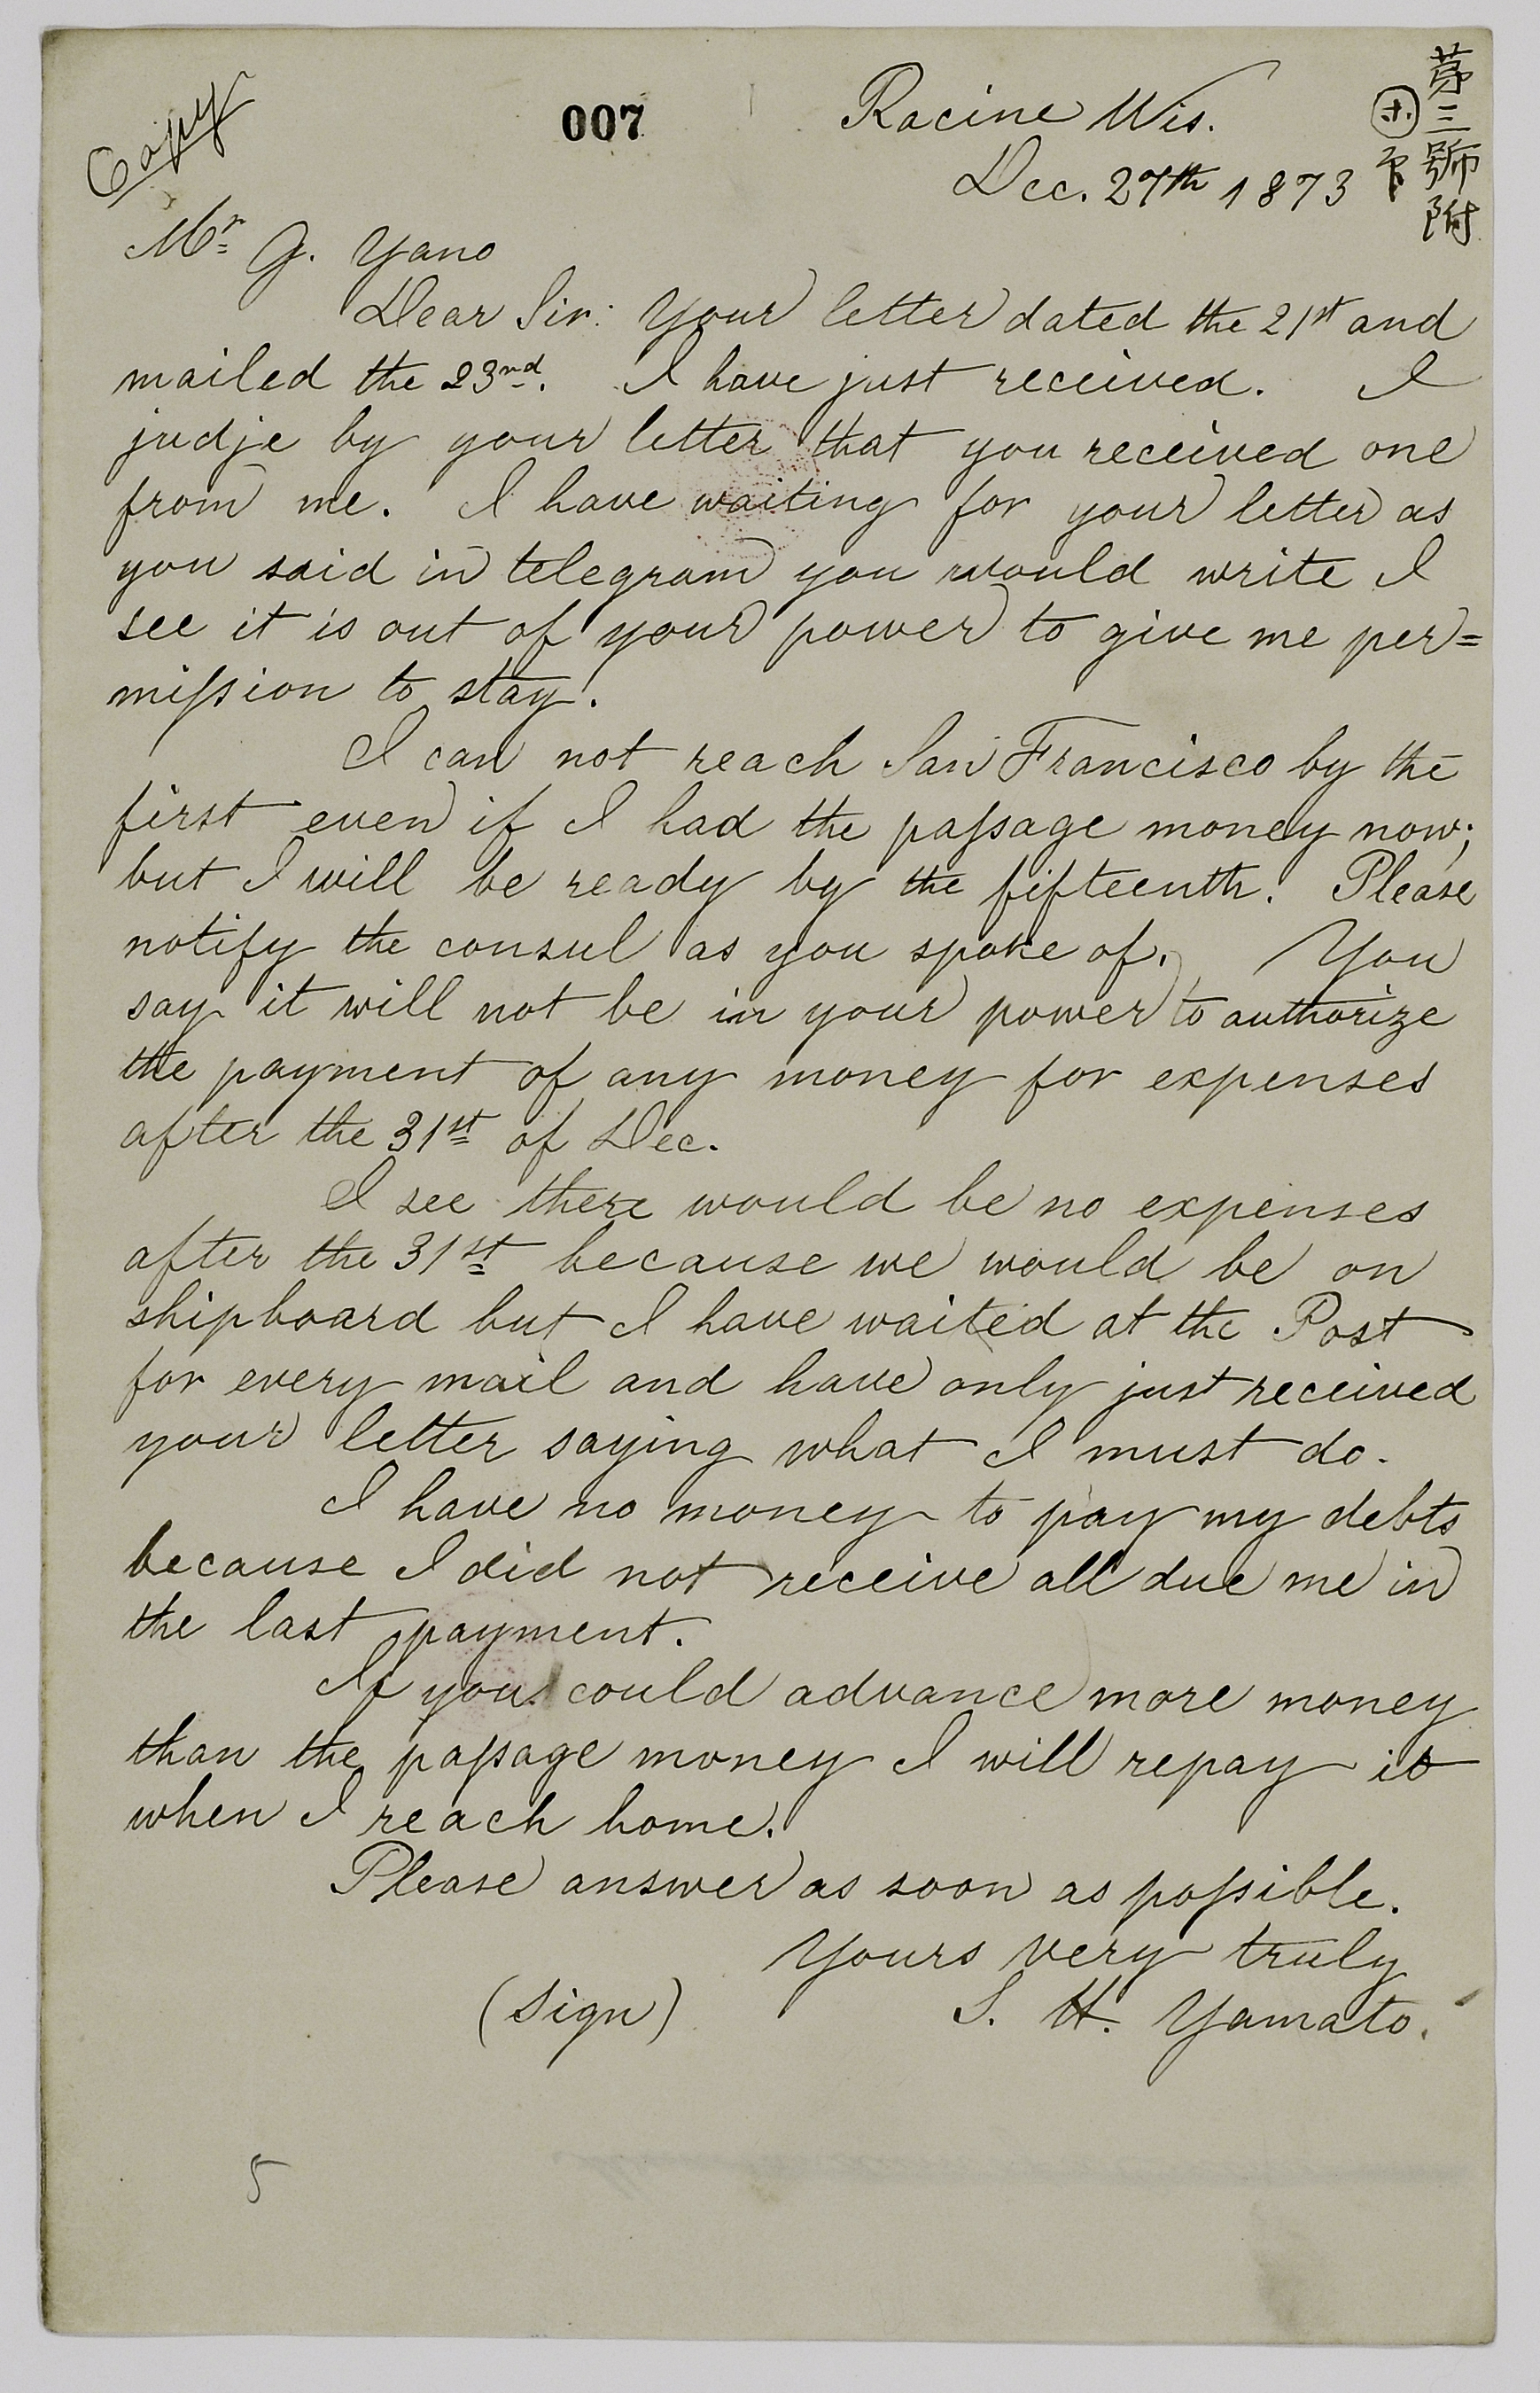 Copy
007
Racine Wis.
Dec. 27th 1873
第三號附
Mr G. Yano
Dear Sir: Your letter dated the 21st and
mailed the 23rd. I have just received. I
judje by your letter that you received one
from me. I have waiting for your letter as
you said in telegram you would write I
see it is out of your power to give me per=
mission to stay.
I can not reach San Francisco by the
first even if I had the passage money now;
but I will be ready by the fifteenth. Please
notify the consul as you spoke of. You
say it will not be in your power to authorize
the payment of any money for expenses
after the 31st of Dec.
I see there would be no expenses
after the 31st because we would be on
shipboard but I have waited at the Post
for every mail and have only just received
your letter saying what I must do.
I have no money to pay my debts
because I did not receive all due me in
the last payment.
If you could advance more money
than the passage money I will repay it
when I reach home.
Please answer as soon as possible.
Yours very truly
(Sign) S. H. Yamato.
5